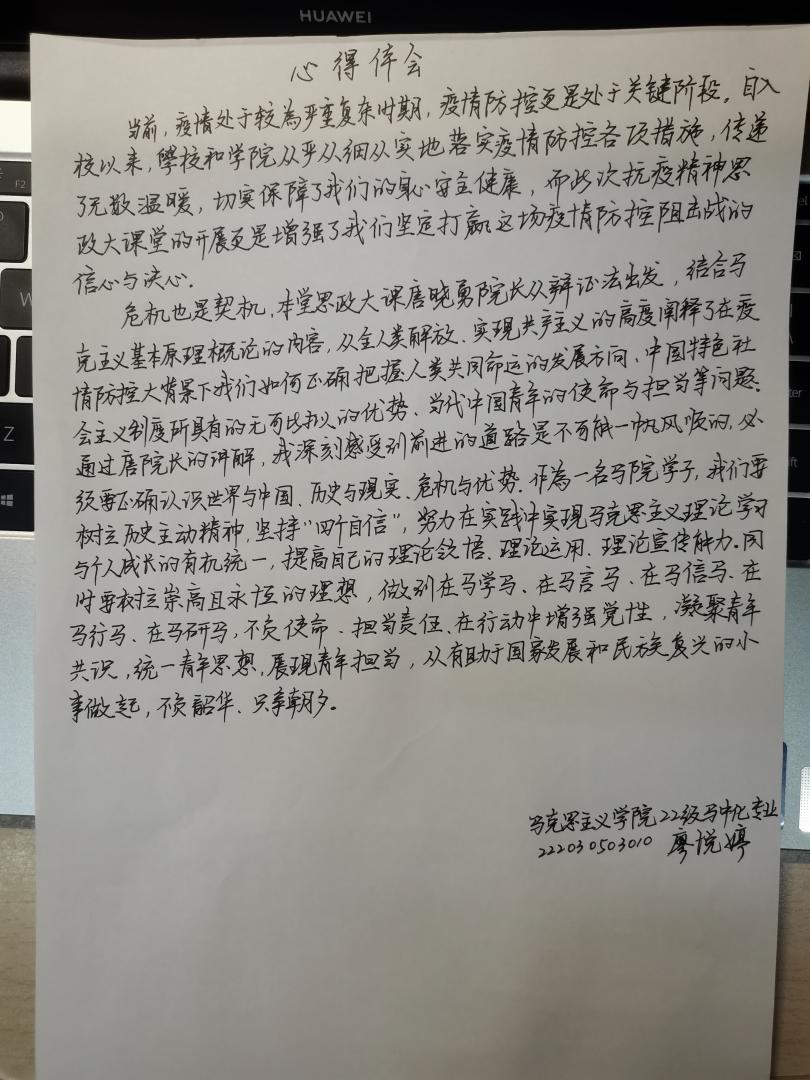 HUAWEI
心得体会
当前，疫情处于较为严重复杂时期，疫情防控更是处于关键阶段。自入
校以来，學校和学院从严从细从实地落实疫情防控各项措施，传递
了无数温暖，切实保障了我们的身心安全健康，而此次抗疫精神思
政大课堂的开展更是增强了我们坚定打赢这场疫情防控阻击战的
信心与决心。
危机也是契机，本堂思政大课唐晓勇院长从辩证法出发，结合马
克主义基本原理概论的内容，从全人类解放、实现共产主义的高度阐释了在疫
情防控大背景下我们如何正确把握人类共同命运的发展方向、中国特色社
会主义制度所具有的无可比拟的优势、当代中国青年的使命与担当等问题。
通过唐院长的讲解，我深刻感受到前进的道路是不可能一帆风顺的，必
须要正确认识世界与中国、历史与现实、危机与优势。作為一名马院学子，我们要
树立历史主动精神，坚持“四个自信”，努力在实践中实现马克思主义理论学习
与个人成长的有机统一，提高自己的理论领悟、理论运用、理论宣传能力。同
时要树立崇高且永恒的理想，做到在马学马、在马言马、在马信马、在
马行马、在马研马，不负使命、担当责任、在行动中增强党性，凝聚青年
共识，统一青年思想，展现青年担当，从有助于国家发展和民族复兴的小
事做起，不负韶华、只争朝夕。
马克思主义学院22级马中化专业
222030503010 廖悦婷
F2
W
Z